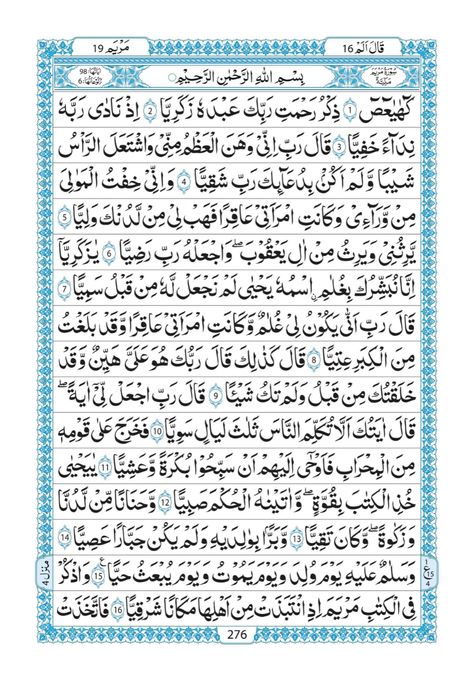 مَرْيَم 19
قَالَ اَلَمْ 16
اٰيَاتُهَا: 98
رُكُوْعَاتُهَا: 6
بِسْمِ اللهِ الرَّحْمٰنِ الرَّحِيْمِ
سُوْرَةُ مَرْيَمَ
مَكِّيَّةٌ
كٓهٰيٰعٓصٓ 1 ذِكْرُ رَحْمَتِ رَبِّكَ عَبْدَهٗ زَكَرِيَّا 2 اِذْ نَادٰى رَبَّهٗ
نِدَآءً خَفِيًّا 3 قَالَ رَبِّ اِنِّىْ وَهَنَ الْعَظْمُ مِنِّىْ وَاشْتَعَلَ الرَّاْسُ
شَيْبًا وَّلَمْ اَكُنْۢ بِدُعَآئِكَ رَبِّ شَقِيًّا 4 وَاِنِّىْ خِفْتُ الْمَوَالِىَ
مِنْ وَّرَآءِىْ وَكَانَتِ امْرَاَتِىْ عَاقِرًا فَهَبْ لِىْ مِنْ لَّدُنْكَ وَلِيًّا 5
يَّرِثُنِىْ وَيَرِثُ مِنْ اٰلِ يَعْقُوْبَ ۖ وَاجْعَلْهُ رَبِّ رَضِيًّا 6 يٰزَكَرِيَّآ
اِنَّا نُبَشِّرُكَ بِغُلٰمِ ۨاسْمُهٗ يَحْيٰى لَمْ نَجْعَلْ لَّهٗ مِنْ قَبْلُ سَمِيًّا 7
قَالَ رَبِّ اَنّٰى يَكُوْنُ لِىْ غُلٰمٌ وَّكَانَتِ امْرَاَتِىْ عَاقِرًا وَّقَدْ بَلَغْتُ
مِنَ الْكِبَرِ عِتِيًّا 8 قَالَ كَذٰلِكَ قَالَ رَبُّكَ هُوَ عَلَىَّ هَيِّنٌ وَّقَدْ
خَلَقْتُكَ مِنْ قَبْلُ وَلَمْ تَكُ شَيْـًٔا 9 قَالَ رَبِّ اجْعَلْ لِّىْٓ اٰيَةً ۖ
قَالَ اٰيَتُكَ اَلَّا تُكَلِّمَ النَّاسَ ثَلٰثَ لَيَالٍ سَوِيًّا 10 فَخَرَجَ عَلٰى قَوْمِهٖ
مِنَ الْمِحْرَابِ فَاَوْحٰىٓ اِلَيْهِمْ اَنْ سَبِّحُوْا بُكْرَةً وَّعَشِيًّا 11 يٰيَحْيٰى
خُذِ الْكِتٰبَ بِقُوَّةٍ ۖ وَاٰتَيْنٰهُ الْحُكْمَ صَبِيًّا 12 وَّحَنَانًا مِّنْ لَّدُنَّا
وَزَكٰوةً ۖ وَّكَانَ تَقِيًّا 13 وَّبَرًّاۢ بِوَالِدَيْهِ وَلَمْ يَكُنْ جَبَّارًا عَصِيًّا 14
وَسَلٰمٌ عَلَيْهِ يَوْمَ وُلِدَ وَيَوْمَ يَمُوْتُ وَيَوْمَ يُبْعَثُ حَيًّا 15 وَاذْكُرْ
فِى الْكِتٰبِ مَرْيَمَ اِذِ انْتَبَذَتْ مِنْ اَهْلِهَا مَكَانًا شَرْقِيًّا 16 فَاتَّخَذَتْ
منزل 4
276